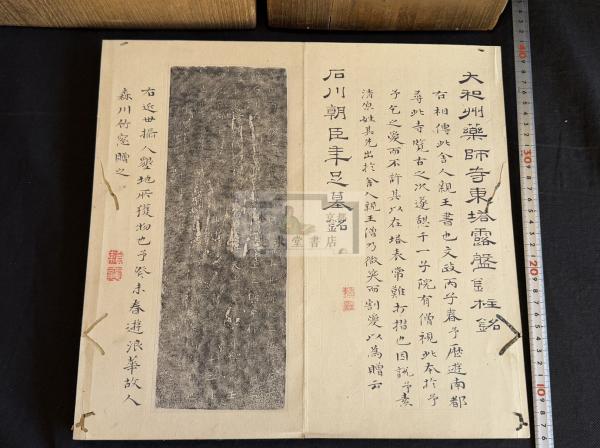 大和州藥師寺東塔露盤㭷柱銘
右相傳此舍人親王書也文政丙子春予歷遊南都
尋此寺覽古之次邊憩于一子院有僧視此本於予
予乞之愛而不許其以在塔表常難打搨也因說予素
清原姓其先出於舍人親王僧乃微笑而割愛以為贈云
石川朝臣年足墓銘
右近世攝人墾地所獲物也予癸未春遊浪華故人
森川竹窓贈之
京都
東堂書店